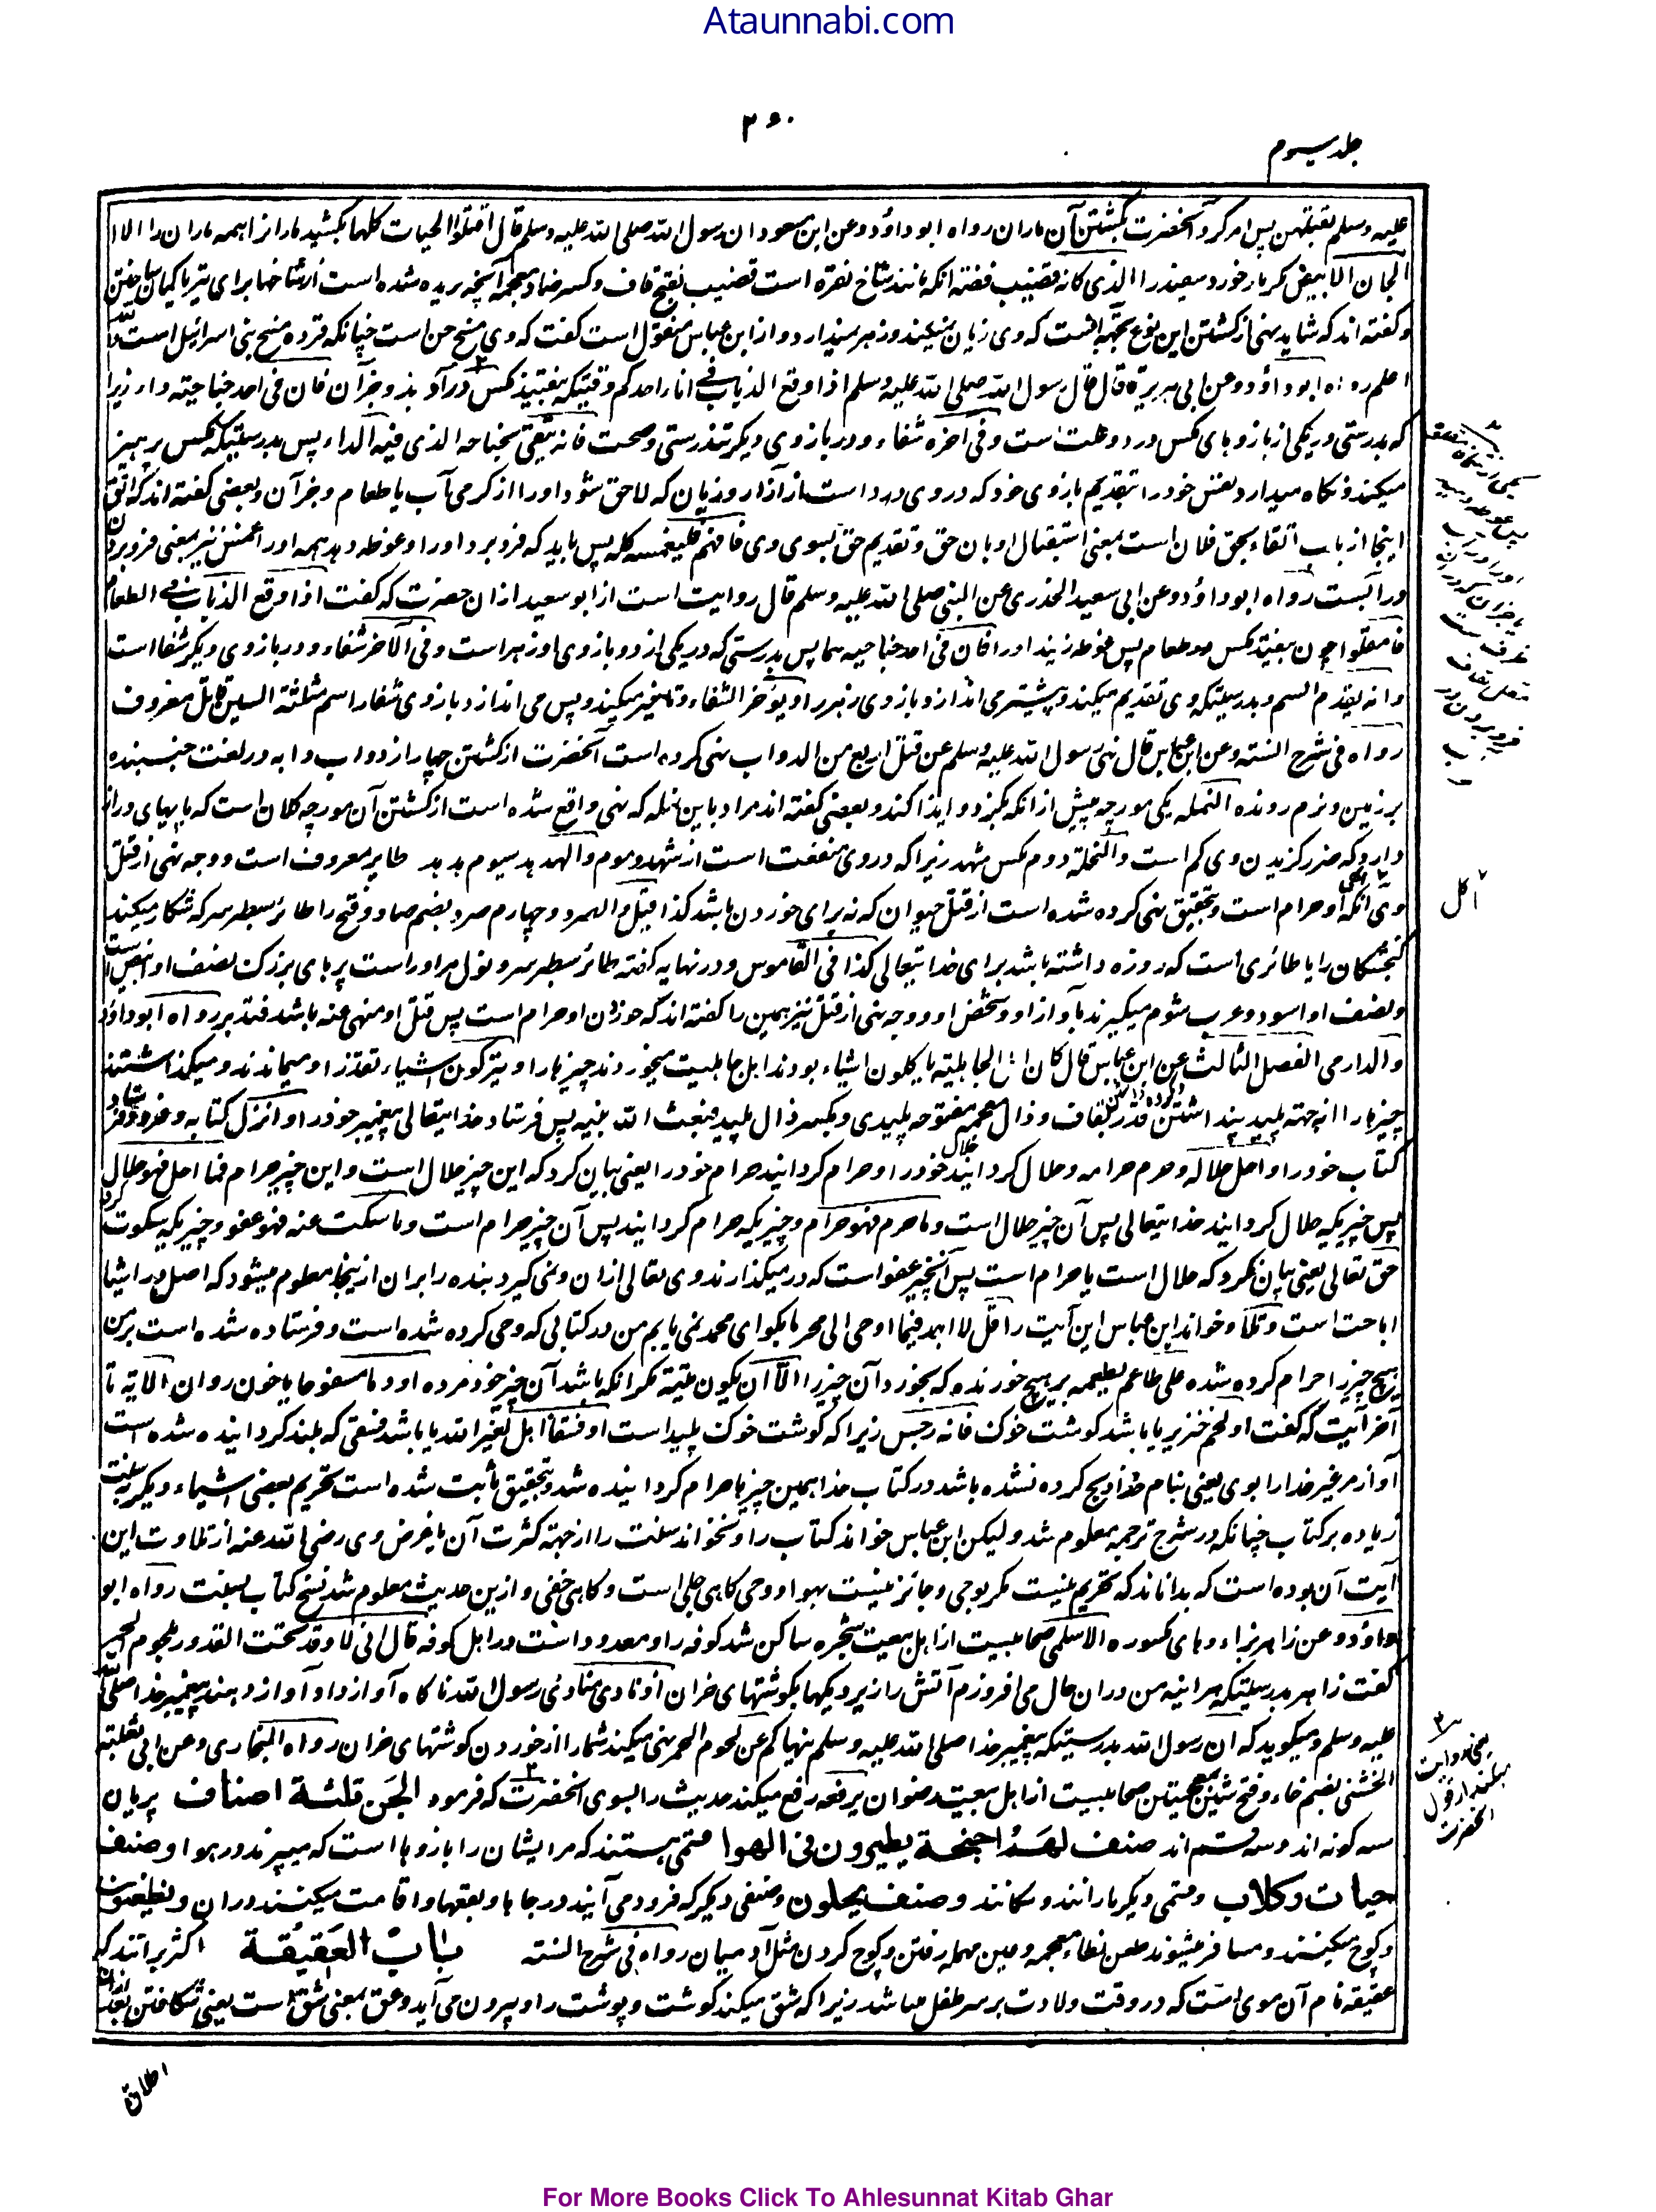 Ataunnabi.com
۳۶۰
جلد سیوم
علیه وسلم بقتلهن پس امر کرد آنحضرت بکشتن آن ماران رواه ابو داؤد وعن ابن مسعود ان رسول الله صلی الله علیه وسلم قال اقتلوا الحیات کلها بکشید ماران را همه ماران را الا
الجان الابیض کر مار خورد سفید را الذی کانه قضیب فضة انکه مانند شاخ نقره است قضیب بفتح قاف وکسر ضاد معجمه آنچه بریده شده است از شاخها برای تیر یا کمان ساختن
وگفته اند که شاید نهی از کشتن این نوع بجهة آنست که وی زیان نمیکند وزهر ندارد واز ابن عباس منقول است گفت که وی مسخ جن است چنانکه قرده مسخ بنی اسرائیل است والله
اعلم رواه ابو داؤد وعن ابی هریرة قال قال رسول الله صلی الله علیه وسلم اذا وقع الذباب فی اناء احدکم وقتیکه بیفتد مکس در آوند وجز آن فان فی احد جناحیه داء زیرا
که بدرستی در یکی از بازوهای مکس درد وعلت است وفی اخره شفاء ودر بازوی دیگر تندرستی وصحت فانه یتقی بجناحه الذی فیه الداء پس بدرستیکه مکس پرهیز
میکند ونگاه میدارد نفس خود را بتقدیم بازوی خود که در وی درد است از آزار وزیان که لاحق شود او را از گرمی آب یا طعام وجز آن وبعضی گفته اند که اتقی
اینجا از باب اتقاء بحق فلان است بمعنی استقبال او بان حق وتقدیم حق بسوی وی فافهم فلیغمسه کله پس باید که فرو برد او را وغوطه دهد همه او را غمس نیز بمعنی فرو بردن
در آبست رواه ابو داؤد وعن ابی سعید الخدری عن النبی صلی الله علیه وسلم قال روایت است از ابو سعید از ان حضرت که گفت اذا وقع الذباب فی الطعام
فامقلوا چون بیفتد مکس در طعام پس غوطه زنید او را فان فی احد جناحیه سما پس بدرستی که در یکی از دو بازوی او زهر است وفی الاخر شفاء ودر بازوی دیگر شفا است
وانه یقدم السم وبدرستیکه وی تقدیم میکند وپیشتر می اندازد بازوی زهر را ویؤخر الشفاء وتاخیر میکند وپس می اندازد بازوی شفا را سم مثلثة السین قاتل معروف
رواه فی شرح السنة وعن ابن عباس قال نهی رسول الله علیه وسلم عن قتل اربع من الدواب نهی کرده است آنحضرت از کشتن چهار از دواب دابه در لغت جنبنده
بر زمین ونرم رونده النملة یکی مورچه پیش از انکه بگزد وایذا کند وبعضی گفته اند مراد باین نمله که نهی واقع شده است از کشتن آن مورچه کلان است که پایهای دراز
دارد که ضرر گزیدن وی کم است والنحلة دوم مکس شهد زیرا که در وی منفعت است از شهد وموم والهدهد سیوم هدهد طایر معروف است ووجه نهی از قتل
وی آنکه او حرام است وبتحقیق نهی کرده شده است از قتل حیوان که نه برای خوردن باشد کذا قیل والصرد وچهارم صرد بضم صاد وفتح را طائر سطبر سر که شکار میکند
گنجشکان را یا طائری است که روزه داشته باشد برای خدا تعالی کذا فی القاموس ودر نهایه گفته طائر سطبر سر ونول مر او راست پرهای بزرگ نصف او ابیض است
ونصف او اسود وعرب شوم میگیرند بآواز او وشخص او ووجه نهی از قتل نیز همین را گفته اند که خوردن او حرام است پس قتل او منهی عنه باشد فتدبر رواه ابو داؤد
والدارمی الفصل الثالث عن ابن عباس قال کان اهل الجاهلیة یاکلون اشیاء بودند اهل جاهلیت میخوردند چیزها را ویترکون اشیاء تقذرا ومیماندند ومیگذاشتند
چیزها را از جهة پلید پنداشتن قذر بقاف وذال معجمه مفتوحه پلیدی وبکسر ذال پلید فبعث الله نبیه پس فرستاد خدا یتعالی پیغمبر خود را وانزل کتابه وفرو فرستاد
کتاب خود را واحل حلاله وحرم حرامه وحلال گردانید حلال خود را وحرام گردانید حرام خود را یعنی بیان کرد که این چیز حلال است واین چیز حرام فما احل فهو حلال
پس چیزیکه حلال گردانید خدا یتعالی پس آن چیز حلال است وما حرم فهو حرام وچیزیکه حرام گردانید پس آن چیز حرام است وما سکت عنه فهو عفو وچیزیکه سکوت کرد
حق تعالی یعنی بیان نکرد که حلال است یا حرام است پس آنچیز عفو است که در میگذارند وی تعالی ازان ونمی گیرد بنده را بران ازینجا معلوم میشود که اصل در اشیا
اباحت است وتلا وخواند ابن عباس این آیت را قل لا اجد فیما اوحی الی محرما بگو ای محمد نمی یابم من در کتابی که وحی کرده شده است وفرستاده شده است بر من
هیچ چیز را حرام کرده شده علی طاعم یطعمه بر هیچ خورنده که بخورد آن چیز را الا ان یکون میتة مگر انکه باشد آن چیز خود مرده او دما مسفوحا یا خون روان الآیة تا
آخر آیت که گفت او لحم خنزیر یا باشد گوشت خوک فانه رجس زیرا که گوشت خوک پلید است او فسقا اهل لغیر الله یا باشد فسقی که بلند گردانیده شده است
آواز مر غیر خدا را بوی یعنی بنام خدا ذبح کرده نشده باشد در کتاب خدا همین چیزها حرام گردانیده شد وبتحقیق ثابت شده است تحریم بعضی اشیاء دیگر بسنت
زیاده بر کتاب چنانکه در شرح ترجمه معلوم شد ولیکن ابن عباس خواند کتاب را ونخواند سنت را از جهة کثرت آن یا غرض وی رضی الله عنه از تلاوت این
آیت آن بوده است که بداناند که تحریم نیست مگر بوحی وجائز نیست بهوا ووحی گاهی جلی است وگاهی خفی وازین حدیث معلوم شد نسخ کتاب بسنت رواه ابو
داؤد وعن زاهر بزاء وهای مکسوره الاسلمی صحابیست از اهل بیعت شجره ساکن شد کوفه را ومعدود است در اهل کوفه قال انی لاوقد تحت القدور بلحوم الحمر
گفت زاهر بدرستیکه هر آینه من دران حال می افروزم آتش را زیر دیگها بگوشتهای خران اذ نادی منادی رسول الله ناگاه آواز داد آواز دهنده پیغمبر خدا صلی الله
علیه وسلم ومیگوید که ان رسول الله بدرستیکه پیغمبر خدا صلی الله علیه وسلم ینهاکم عن لحوم الحمر نهی میکند شما را از خوردن گوشتهای خران رواه البخاری وعن ابی ثعلبة
الخشنی بضم خاء وفتح شین معجمتین صحابیست از اهل بیعت رضوان یرفعه رفع میکند حدیث را بسوی آنحضرت که فرمود الجن ثلثة اصناف پریان
سه گونه اند وسه قسم اند صنف لهم اجنحة یطیرون فی الهوا قسمی هستند که مر ایشان را بازوها است که میپرند در هوا وصنف
حیات وکلاب وقسمی دیگر مارانند وسگانند وصنف یحلون وصنفی دیگر که فرود می آیند در جاها وبقعها واقامت میکنند دران ویظعنون
وکوچ میکنند ومسافر میشوند ظعن بظاء معجمه وعین مهمله رفتن وکوچ کردن مثل آدمیان رواه فی شرح السنة باب العقیقة اکثر برانند که
عقیقه نام آن موی است که در وقت ولادت بر سر طفل میباشد زیرا که شق میکند گوشت وپوست را وبیرون می آید وعق بمعنی شق است یعنی شکافتن بعد ازان
اکل
یعنی روایت
میکند از قول
آنحضرت
اطلاق
For More Books Click To Ahlesunnat Kitab Ghar